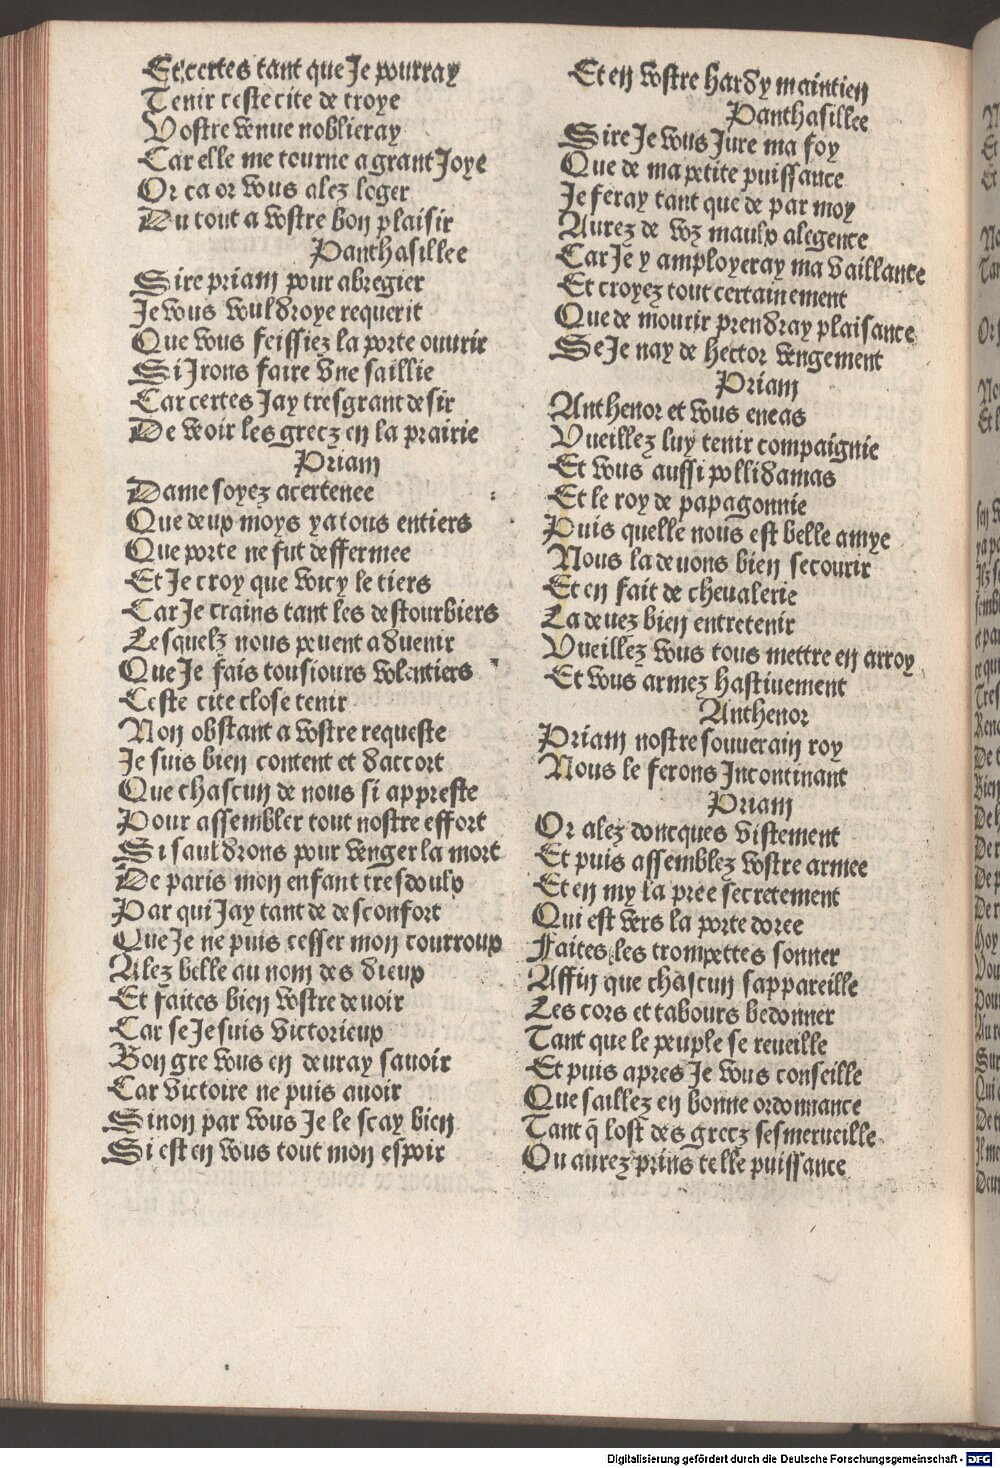 Et certes tant que Je pourray
Tenir ceste cite de troye
Vostre venue noblieray
Car elle me tourne a grant Joye
Or ca or vous alez loger
Du tout a vostre bon plaisir
Panthasillee
Sire priam pour abregier
Je vous vouldroye requerit
Que vous feissiez la porte ouurir
Si Jrons faire vne saillie
Car certes Jay tresgrant desir
De veoir les grecz en la prairie
Priam
Dame soyez acertenee
Que deux moys ya tous entiers
Que porte ne fut deffermee
Et Je croy que voicy le tiers
Car Je crains tant les destourbiers
Lesquelz nous peuent aduenir
Que Je fais tousiours volentiers
Ceste cite close tenir
Non obstant a vostre requeste
Je suis bien content et daccort
Que chascun de nous si appreste
Pour assembler tout nostre effort
Si sauldrons pour venger la mort
De paris mon enfant tresdoulx
Par qui Jay tant de desconfort
Que Je ne puis cesser mon courroux
Alez belle au nom des dieux
Et faites bien vostre deuoir
Car se Je suis victorieux
Bon gre vous en deuray sauoir
Car victoire ne puis auoir
Sinon par vous Je le scay bien
Si est en vous tout mon espoir
Et en vostre hardy maintien
Panthasillee
Sire Je vous Jure ma foy
Que de ma petite puissance
Je feray tant que de par moy
Aurez de voz maulx alegence
Car Je y amployeray ma vaillante
Et croyez tout certainement
Que de mourir prendray plaisance
Se Je nay de hector vengement
Priam
Anthenor et vous eneas
Vueillez luy tenir compaignie
Et vous aussi pollidamas
Et le roy de papagonnie
Puis quelle nous est belle amye
Nous la deuons bien secourir
Et en fait de cheualerie
La deuez bien entretenir
Vueillez vous tous mettre en arroy
Et vous armez hastiuement
Anthenor
Priam nostre souuerain roy
Nous le ferons Incontinant
Priam
Or alez doncques vistement
Et puis assemblez vostre armee
Et en my la pree secretement
Qui est vers la porte doree
Faites les trompettes sonner
Affin que chascun sappareille
Les cors et tabours bedonner
Tant que le peuple se reueille
Et puis apres Je vous conseille
Que saillez en bonne ordonnance
Tant q̃ lost des grecz sesmerueille
Ou aurez prins telle puissance
Digitalisierung gefördert durch die Deutsche Forschungsgemeinschaft - DFG